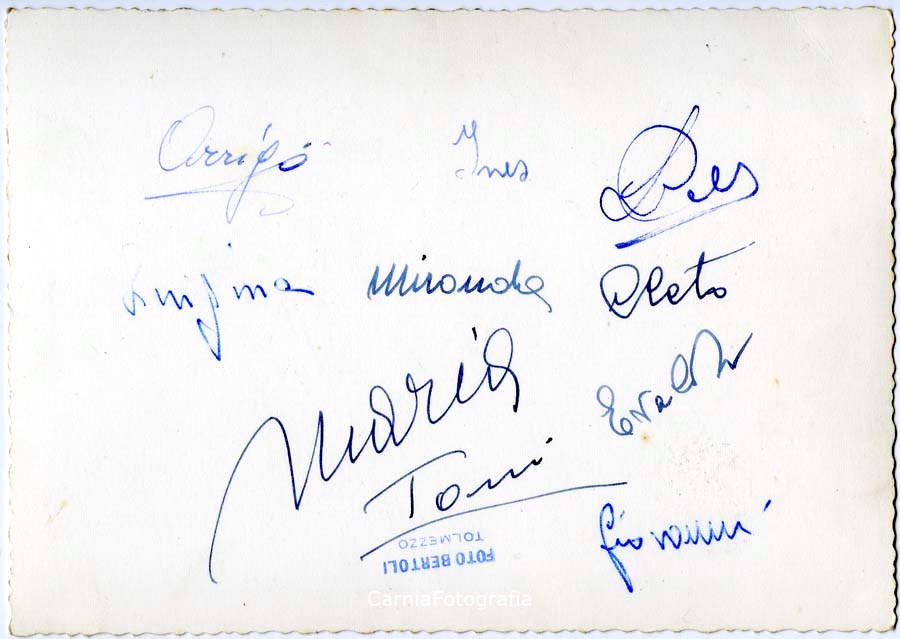 Arrigo Ines
Luigina Miranda
Maria Evaldo
Toni
Giovanni
FOTO BERTOLI
TOLMEZZO
CarniaFotografia